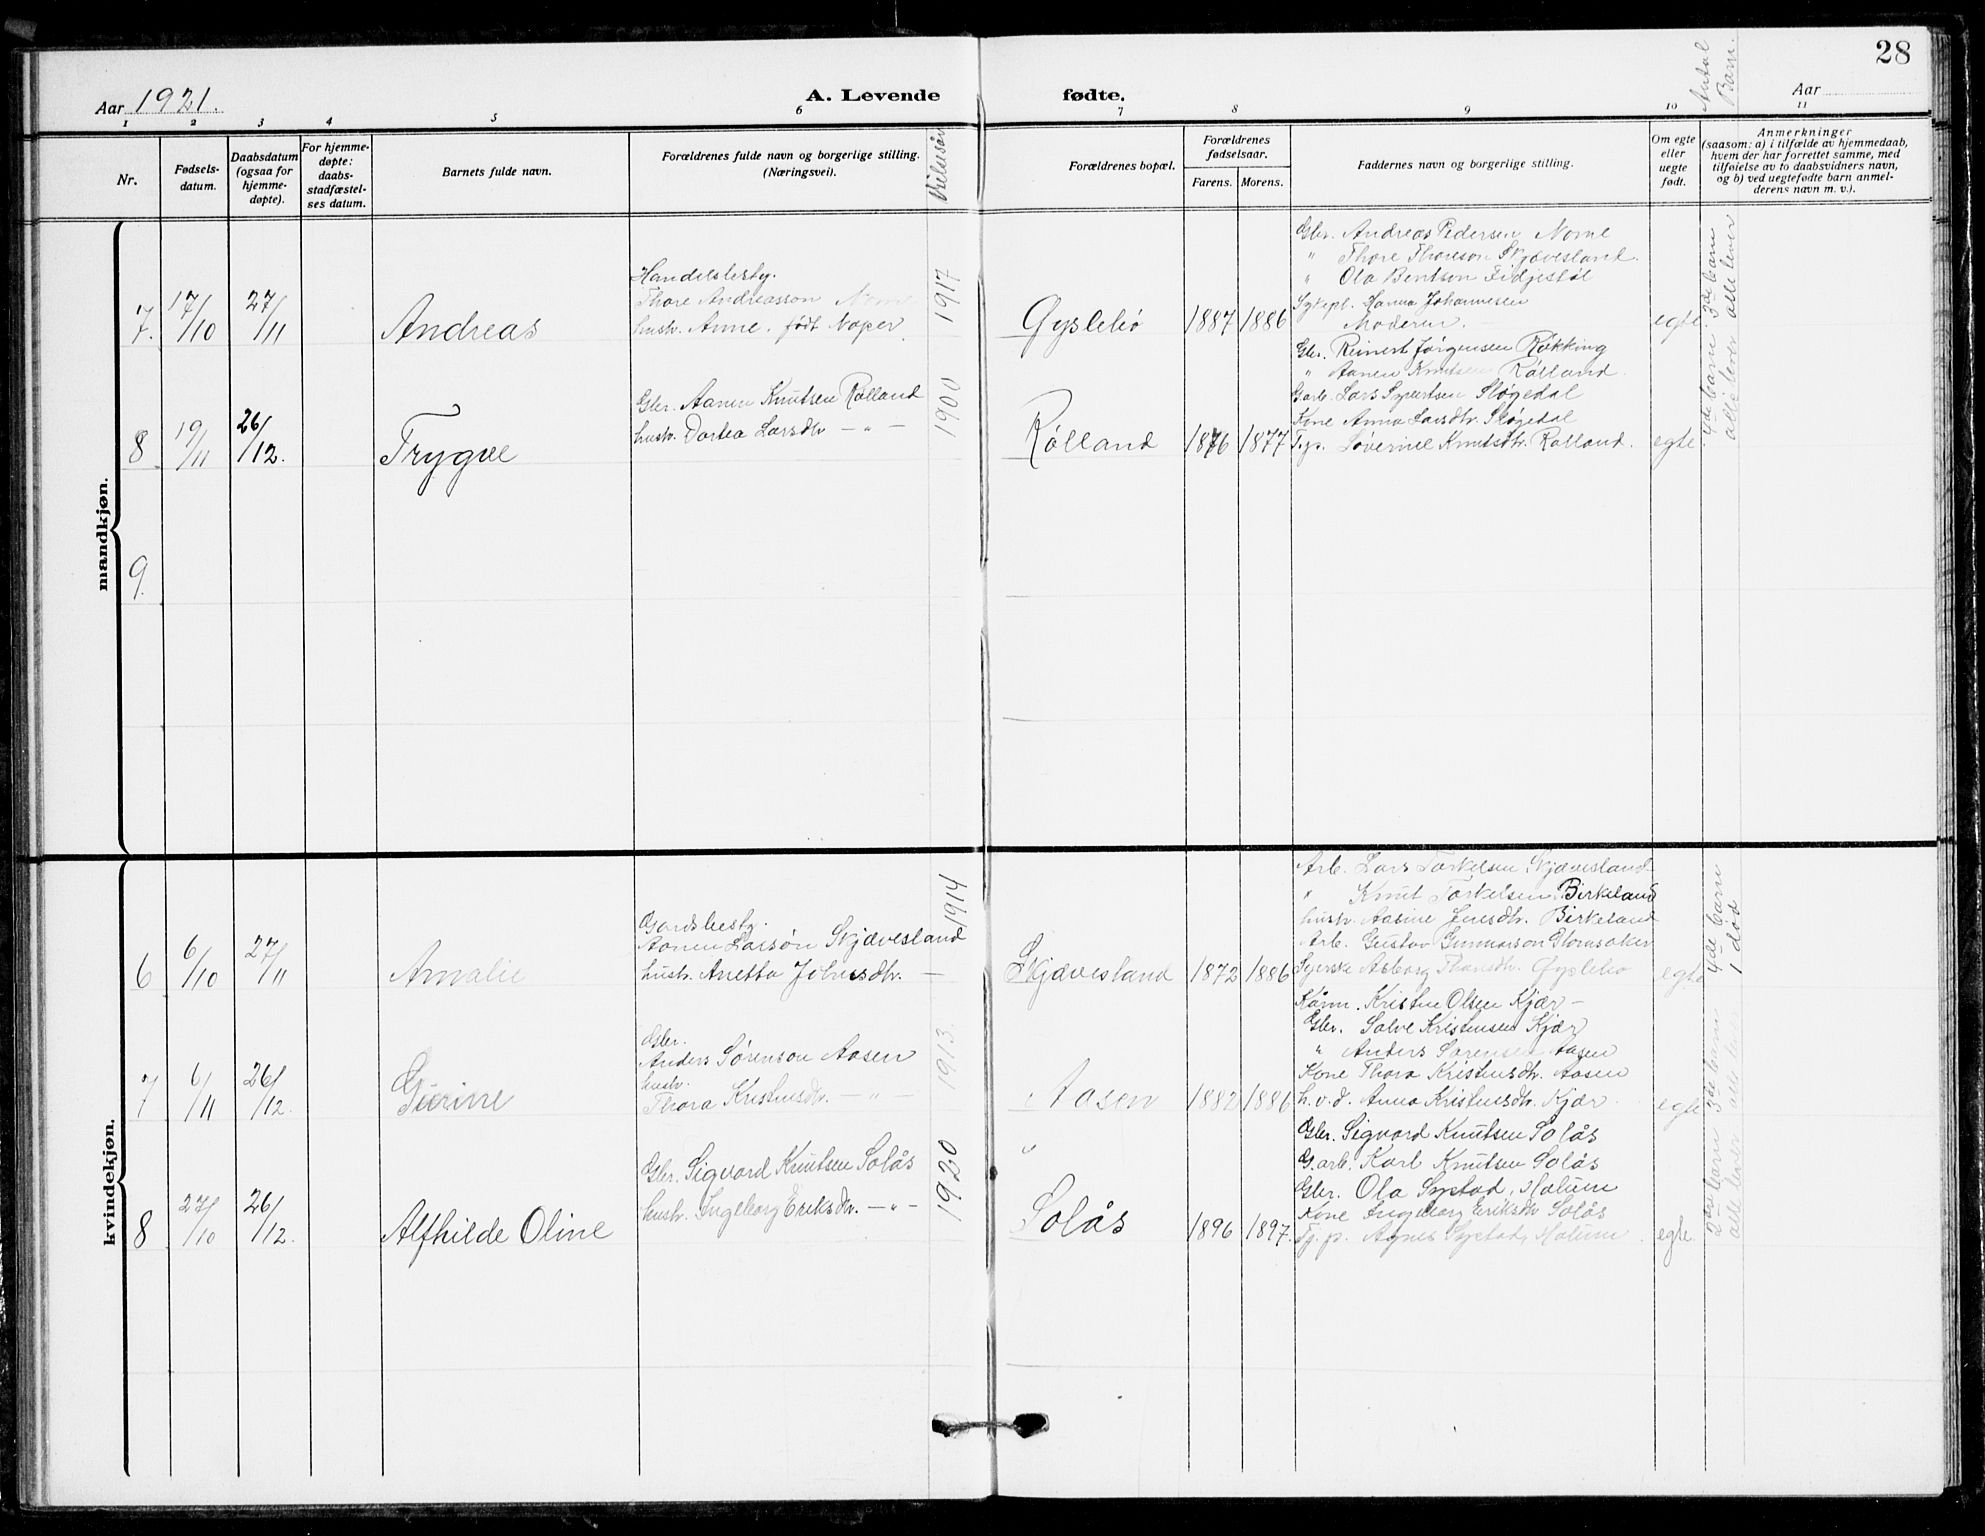 28
Aar 1921.
A. Levende fødte.
Aar
Antal Barn.
1 2 3 4 5 6 7 8 9 10 11
Nr.
Fødsels-
datum.
Daabsdatum
(ogsaa for
hjemme-
døpte).
For hjemme-
døpte:
daabs-
stadfæstel-
ses datum.
Barnets fulde navn.
Forældrenes fulde navn og borgerlige stilling.
(Næringsvei).
Vielsesår
Forældrenes bopæl.
Forældrenes
fødselsaar.
Farens. Morens.
Faddernes navn og borgerlige stilling.
Om egte
eller
uegte
født.
Anmerkninger
(saasom: a) i tilfælde av hjemmedaab,
hvem der har forrettet samme, med
tilføielse av to daabsvidners navn,
og b) ved uegtefødte barn anmel-
derens navn m. v.).
mandkjøn.
7. 17/10 27/11 Andreas
Handelsbesty.
Thore Andreasson Nome
hustr. Anne, født Noper
1917
Gyslebø 1887 1886
Gbr. Andreas Pedersen Nome
" Thore Thoreson Skjævesland.
" Ola Bentson Fidjestøl
Sykepl. Hanna Johannesen
Moderen.
egte
3de barn
alle lever
8 19/11 26/12. Trygve
Gbr. Aanen Knutsen Rølland
hustr. Dortea Larsdtr. - " -
1900
Rølland 1876 1877
Gbr. Reinert Jørgensen Røkking
" Aanen Knutsen Rølland.
Garb. Lars Syvertsen Sløgedal
Kone Anna Larsdtr. Sløgedal
Tj.p. Knutsdtr. Rølland.
egte
4de barn
alle lever
9.
kvindekjøn.
6 6/10 27/11 Amalie
Gardsbesty.
Aanen Larsøn Skjævesland
hustr. Anetta -
1914
Skjævesland 1872 1886
Arb. Lars Torkelsen Skjævesland
" Knut Torkelsen Birkeland
hustr. Aasine Jensdtr. Birkeland
Arb. Gustav Gunnarson Glomsaker
Syerske Asborg Thorsdtr. Gyslebø
egte
4de barn
1 død
7 6/11 26/12. Gurine
Gbr.
Anders Sørenson Aasen
hustr.
Thora Kristensdtr. - " -
1913.
Aasen 1882 1886
Kårm. Kristen Olsen Kjær -
Gbr. Salve Kristensen Kjær
" Anders Sørensen Aasen
Kone Thora Kristensdtr. Aasen
h.v.d. Anna Kristensdtr. Kjær.
egte
3de barn
alle lever
8 27/10 26/12. Alfhilde Oline
Gbr. Sigvard Knutsen Solås
hustr. Ingeborg Eriksdtr. - " -
1920
"
Solås 1896 1897.
Gbr. Sigvard Knutsen Solås
G.arb. Karl Knutsen Solås
Gbr. Ola Systad, Holum
Kone Ingeborg Eriksdtr Solås
Tj.p. Agnes Systad, Holum.
egte.
2det barn
alle lever